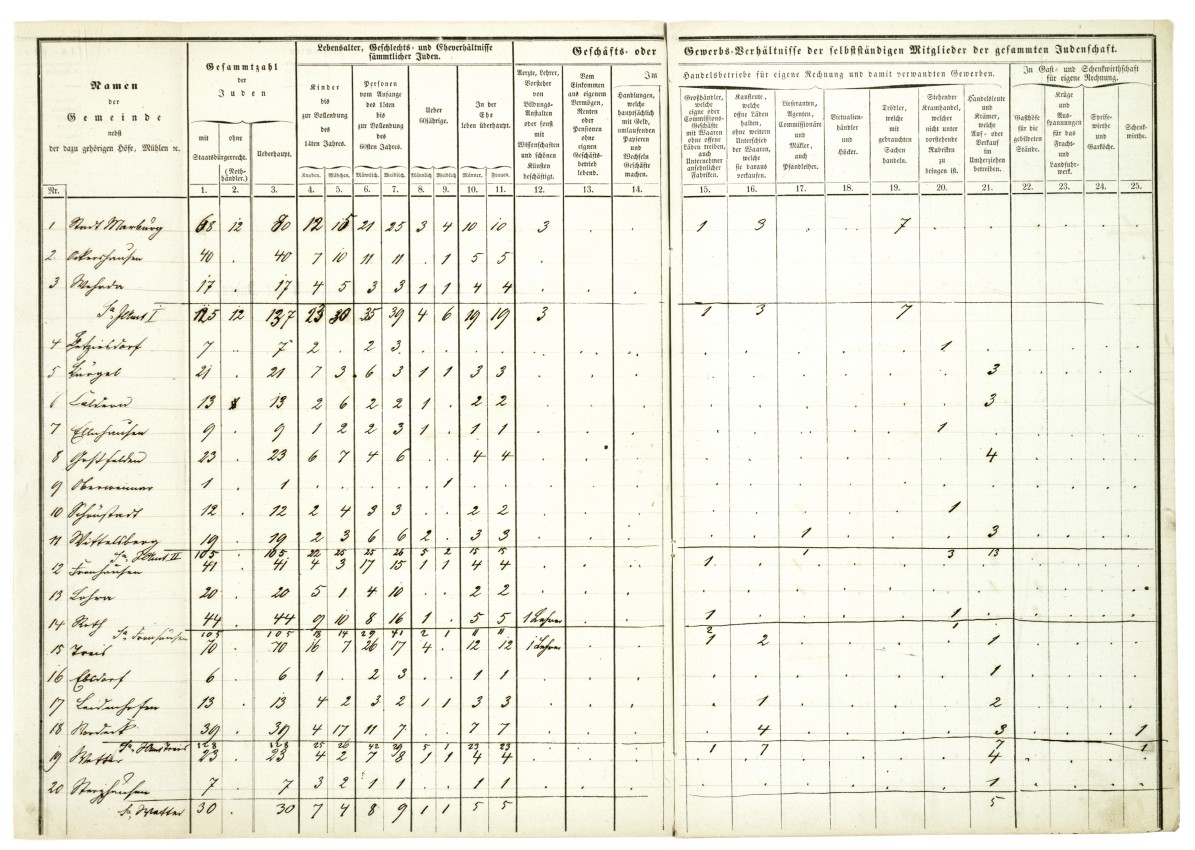 Lebensalter, Geschlechts- und Eheverhältnisse sämmtlicher Juden.
Geschäfts- oder Gewerbs-Verhältnisse der selbstständigen Mitglieder der gesammten Judenschaft.
Namen
der
Gemeinde
nebst
der dazu gehörigen Höfe, Mühlen ꝛc.
Gesammtzahl
der
Juden
mit ohne
Staatsbürgerrecht.
(Nothhändler.)
Ueberhaupt.
Kinder
bis
zur Vollendung
des
14ten Jahres.
Knaben. Mädchen.
Personen
vom Anfange
des 15ten
bis
zur Vollendung
des
60sten Jahres.
Männlich. Weiblich.
Ueber
60jährige.
Männlich Weiblich.
In der
Ehe
leben überhaupt.
Männer. Frauen.
Aerzte, Lehrer,
Vorsteher
von
Bildungs-
Anstalten
oder sonst
mit
Wissenschaften
und schönen
Künsten
beschäftigt.
Vom
Einkommen
aus eigenem
Vermögen,
Renten
oder
Pensionen
ohne
eigenen
Geschäfts-
betrieb
lebend.
Im Handelsbetriebe für eigene Rechnung und damit verwandten Gewerben.
Handlungen,
welche
hauptsächlich
mit Geld,
umlaufenden
Papieren
und
Wechseln
Geschäfte
machen.
Großhändler,
welche
eigne oder
Commissions-
Geschäfte
mit Waaren
ohne offene
Läden treiben,
auch
Unternehmer
ansehnlicher
Fabriken.
Kaufleute,
welche
ohne Läden
halten,
ohne weitern
Unterschied
der Waaren,
welche
sie daraus
verkaufen.
Lieferanten,
Agenten,
Commissionäre
und
Mäkler,
auch
Pfandleiher.
Victualien-
händler
und
Höcker.
Trödler,
welche
mit
gebrauchten
Sachen
handeln.
Stehender
Kramhandel,
welcher
nicht unter
vorstehende
Rubriken
zu
bringen ist.
Handelsleute
und
Krämer,
welche
Auf- oder
Verkauf
im
Umherziehen
betreiben.
In Gast- und Schenkwirthschaft
für eigene Rechnung.
Gasthöfe
für die
gebildeten
Stände.
Krüge
und
Aus-
spannungen
für das
Fracht-
und
Landfuhr-
werk.
Speise-
wirthe
und
Garköche.
Schenk-
wirthe.
Nr. 1. 2. 3. 4. 5. 6. 7. 8. 9. 10. 11. 12. 13. 14. 15. 16. 17. 18. 19. 20. 21. 22. 23. 24. 25.
1 Stadt Marburg 68 12 80 12 15 21 25 3 4 10 10 3 . . 1 3 . . 7
2 Ockershausen 40 . 40 7 10 11 11 . 1 5 5
3 Wehrda 17 . 17 4 5 3 3 1 1 4 4
Sa. Amt I 125 12 137 23 30 35 39 4 6 19 19 3 1 3 7
4 7 . 7 2 . 2 3 1
5 Bürgel 21 . 21 7 3 6 3 1 1 3 3 3
6 Caldern 13 13 2 6 2 2 1 . 2 2 3
7 Ellnhausen 9 . 9 1 2 2 3 1 . 1 1 1
8 Goßfelden 23 . 23 6 7 4 6 4 4 4
9 Oberweimar 1 . 1 1
10 Schönstadt 12 . 12 2 4 3 3 2 2 1
11 Wittelsberg 19 . 19 2 3 6 6 2 . 3 3 1 3
Sa. Amt II 105 105 22 25 25 26 5 2 15 15 1 3 13
12 Fronhausen 41 . 41 4 3 17 15 1 1 4 4 1
13 Lohra 20 . 20 5 1 4 10 2 2
14 Roth 44 . 44 9 10 8 16 1 . 5 5 1 Lehrer 1 1
Sa. Fronhausen 105 105 18 14 29 41 2 1 11 11 2 1
15 Treis 70 . 70 16 7 26 17 4 . 12 12 1 Lehrer 1 2 1
16 Ebsdorf 6 . 6 1 . 2 3 1 1 1
17 Leidenhofen 13 . 13 4 2 3 2 1 1 3 3 1 2
18 Nordeck 39 . 39 4 17 11 7 7 7 4 3 1
Sa. Amt Treis 128 128 25 26 42 29 5 1 23 23 1 7 7 1
19 Wetter 23 23 4 2 7 8 1 1 4 4 4
20 Sterzhausen 7 . 7 3 2 1 1 1 1 1
Sa. Wetter 30 . 30 7 4 8 9 1 1 5 5 5